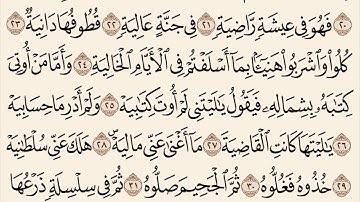 ٢٠ فَهُوَ فِي عِيشَةٍ رَّاضِيَةٍ ٢١ فِي جَنَّةٍ عَالِيَةٍ ٢٢ قُطُوفُهَا دَانِيَةٌ ٢٣
كُلُوا۟ وَٱشْرَبُوا۟ هَنِيٓـًٔۢا بِمَآ أَسْلَفْتُمْ فِي ٱلْأَيَّامِ ٱلْخَالِيَةِ ٢٤ وَأَمَّا مَنْ أُوتِيَ
كِتَٰبَهُۥ بِشِمَالِهِۦ فَيَقُولُ يَٰلَيْتَنِي لَمْ أُوتَ كِتَٰبِيَهْ ٢٥ وَلَمْ أَدْرِ مَا حِسَابِيَهْ
٢٦ يَٰلَيْتَهَا كَانَتِ ٱلْقَاضِيَةَ ٢٧ مَآ أَغْنَىٰ عَنِّي مَالِيَهْ ٢٨ هَلَكَ عَنِّي سُلْطَٰنِيَهْ
٢٩ خُذُوهُ فَغُلُّوهُ ٣٠ ثُمَّ ٱلْجَحِيمَ صَلُّوهُ ٣١ ثُمَّ فِي سِلْسِلَةٍ ذَرْعُهَا